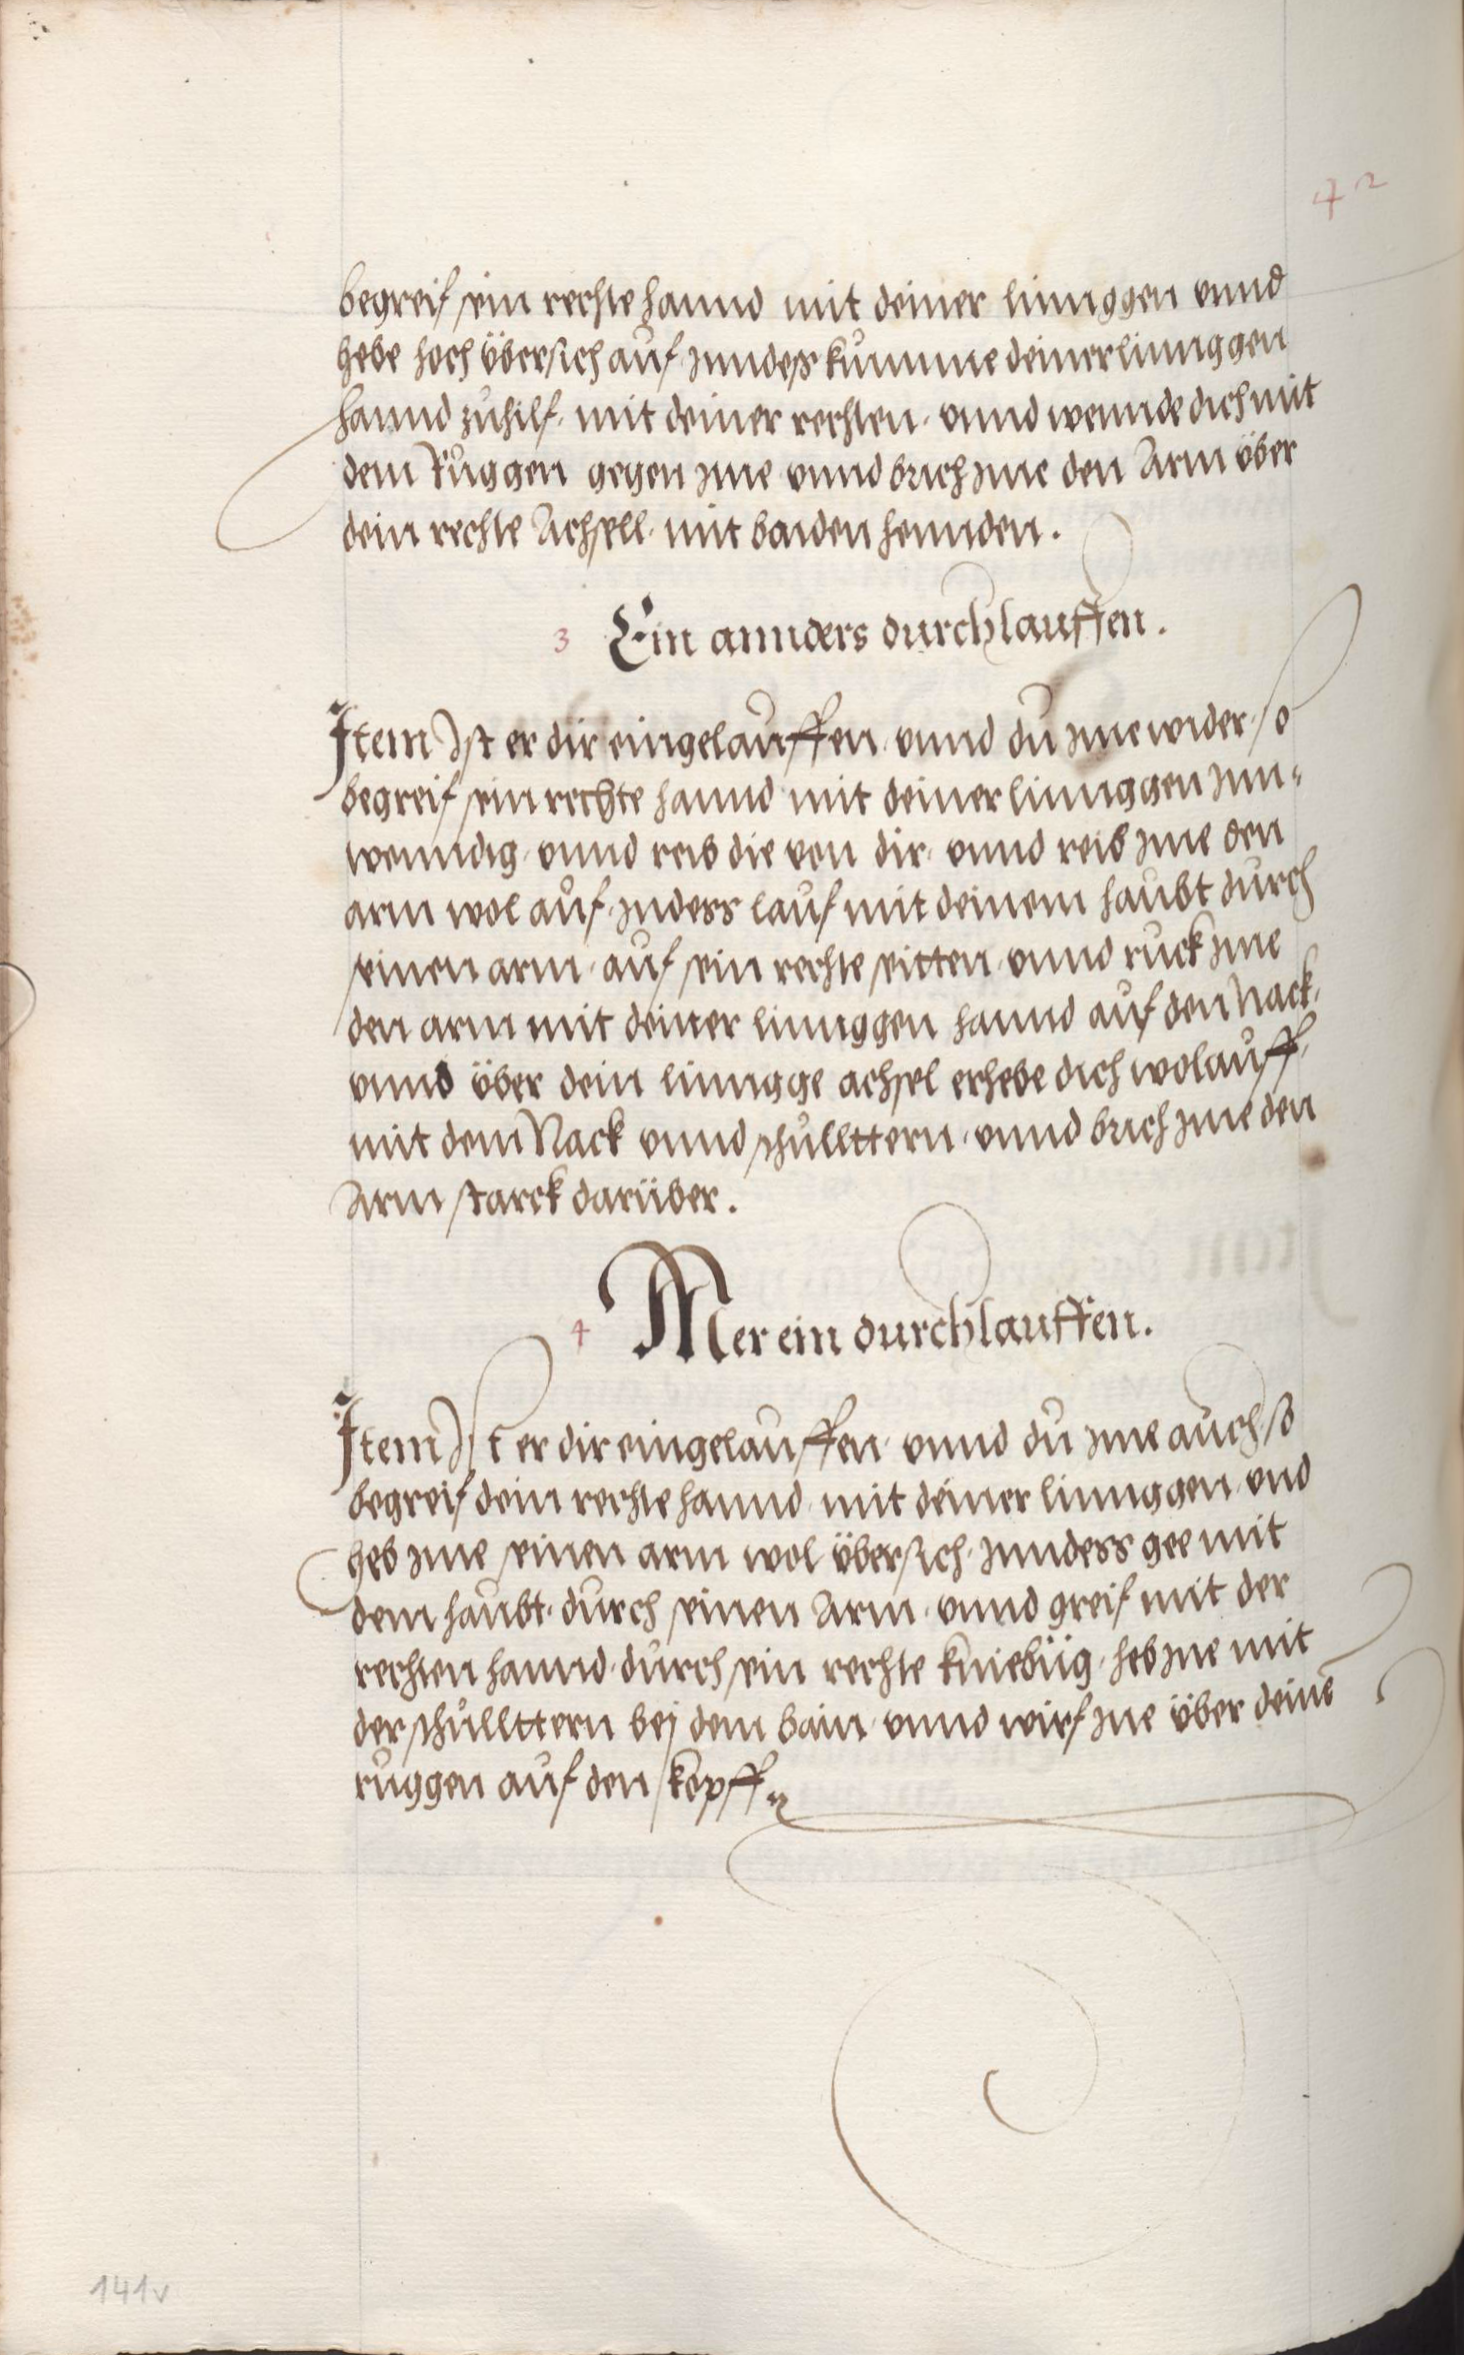 42
begreif sein rechte hannd mit deiner linnggen vnnd
hebe hoch übersich auf, Inndess kumme deiner linnggen
hannd zuhilf, mit deiner rechten, vnnd wennde dich mit
dem Ruggen gegen Ime vnnd brich Ime den Arm über
dein rechte Achsell, mit baiden hennden.
3 Ein annders durchlauffen.
Item Ist er dir eingelauffen, vnnd du Ime wider, so
begreif sein rechte hannd mit deiner linnggen Inn-
wenndig, vnnd reib die von dir, vnnd reib Ime den
arm wol auf, Indess lauf mit deinem haubt durch
seinen arm, auf sein rechte seitten, vnnd ruck Ime
den arm mit deiner linnggen hannd auf den Nack,
vnnd über dein linngge achsel erhebe dich wol auff,
mit dem Nack vnnd schullttern, vnnd brich Ime den
Arm starck darüber.
4 Mer ein durchlauffen.
Item Ist er dir eingelauffen, vnnd du Ime auch, so
begreif dein rechte hannd, mit deiner linnggen, vnd
heb Ime seinen arm wol übersich, Inndess gee mit
dem haubt, durch seinen Arm, vnnd greif mit der
rechten hannd, durch sein rechte kniebüg, heb Ine mit
der schullttern bej dem bain, vnnd wirf Ine über deinē
ruggen auf den kopff.
141v